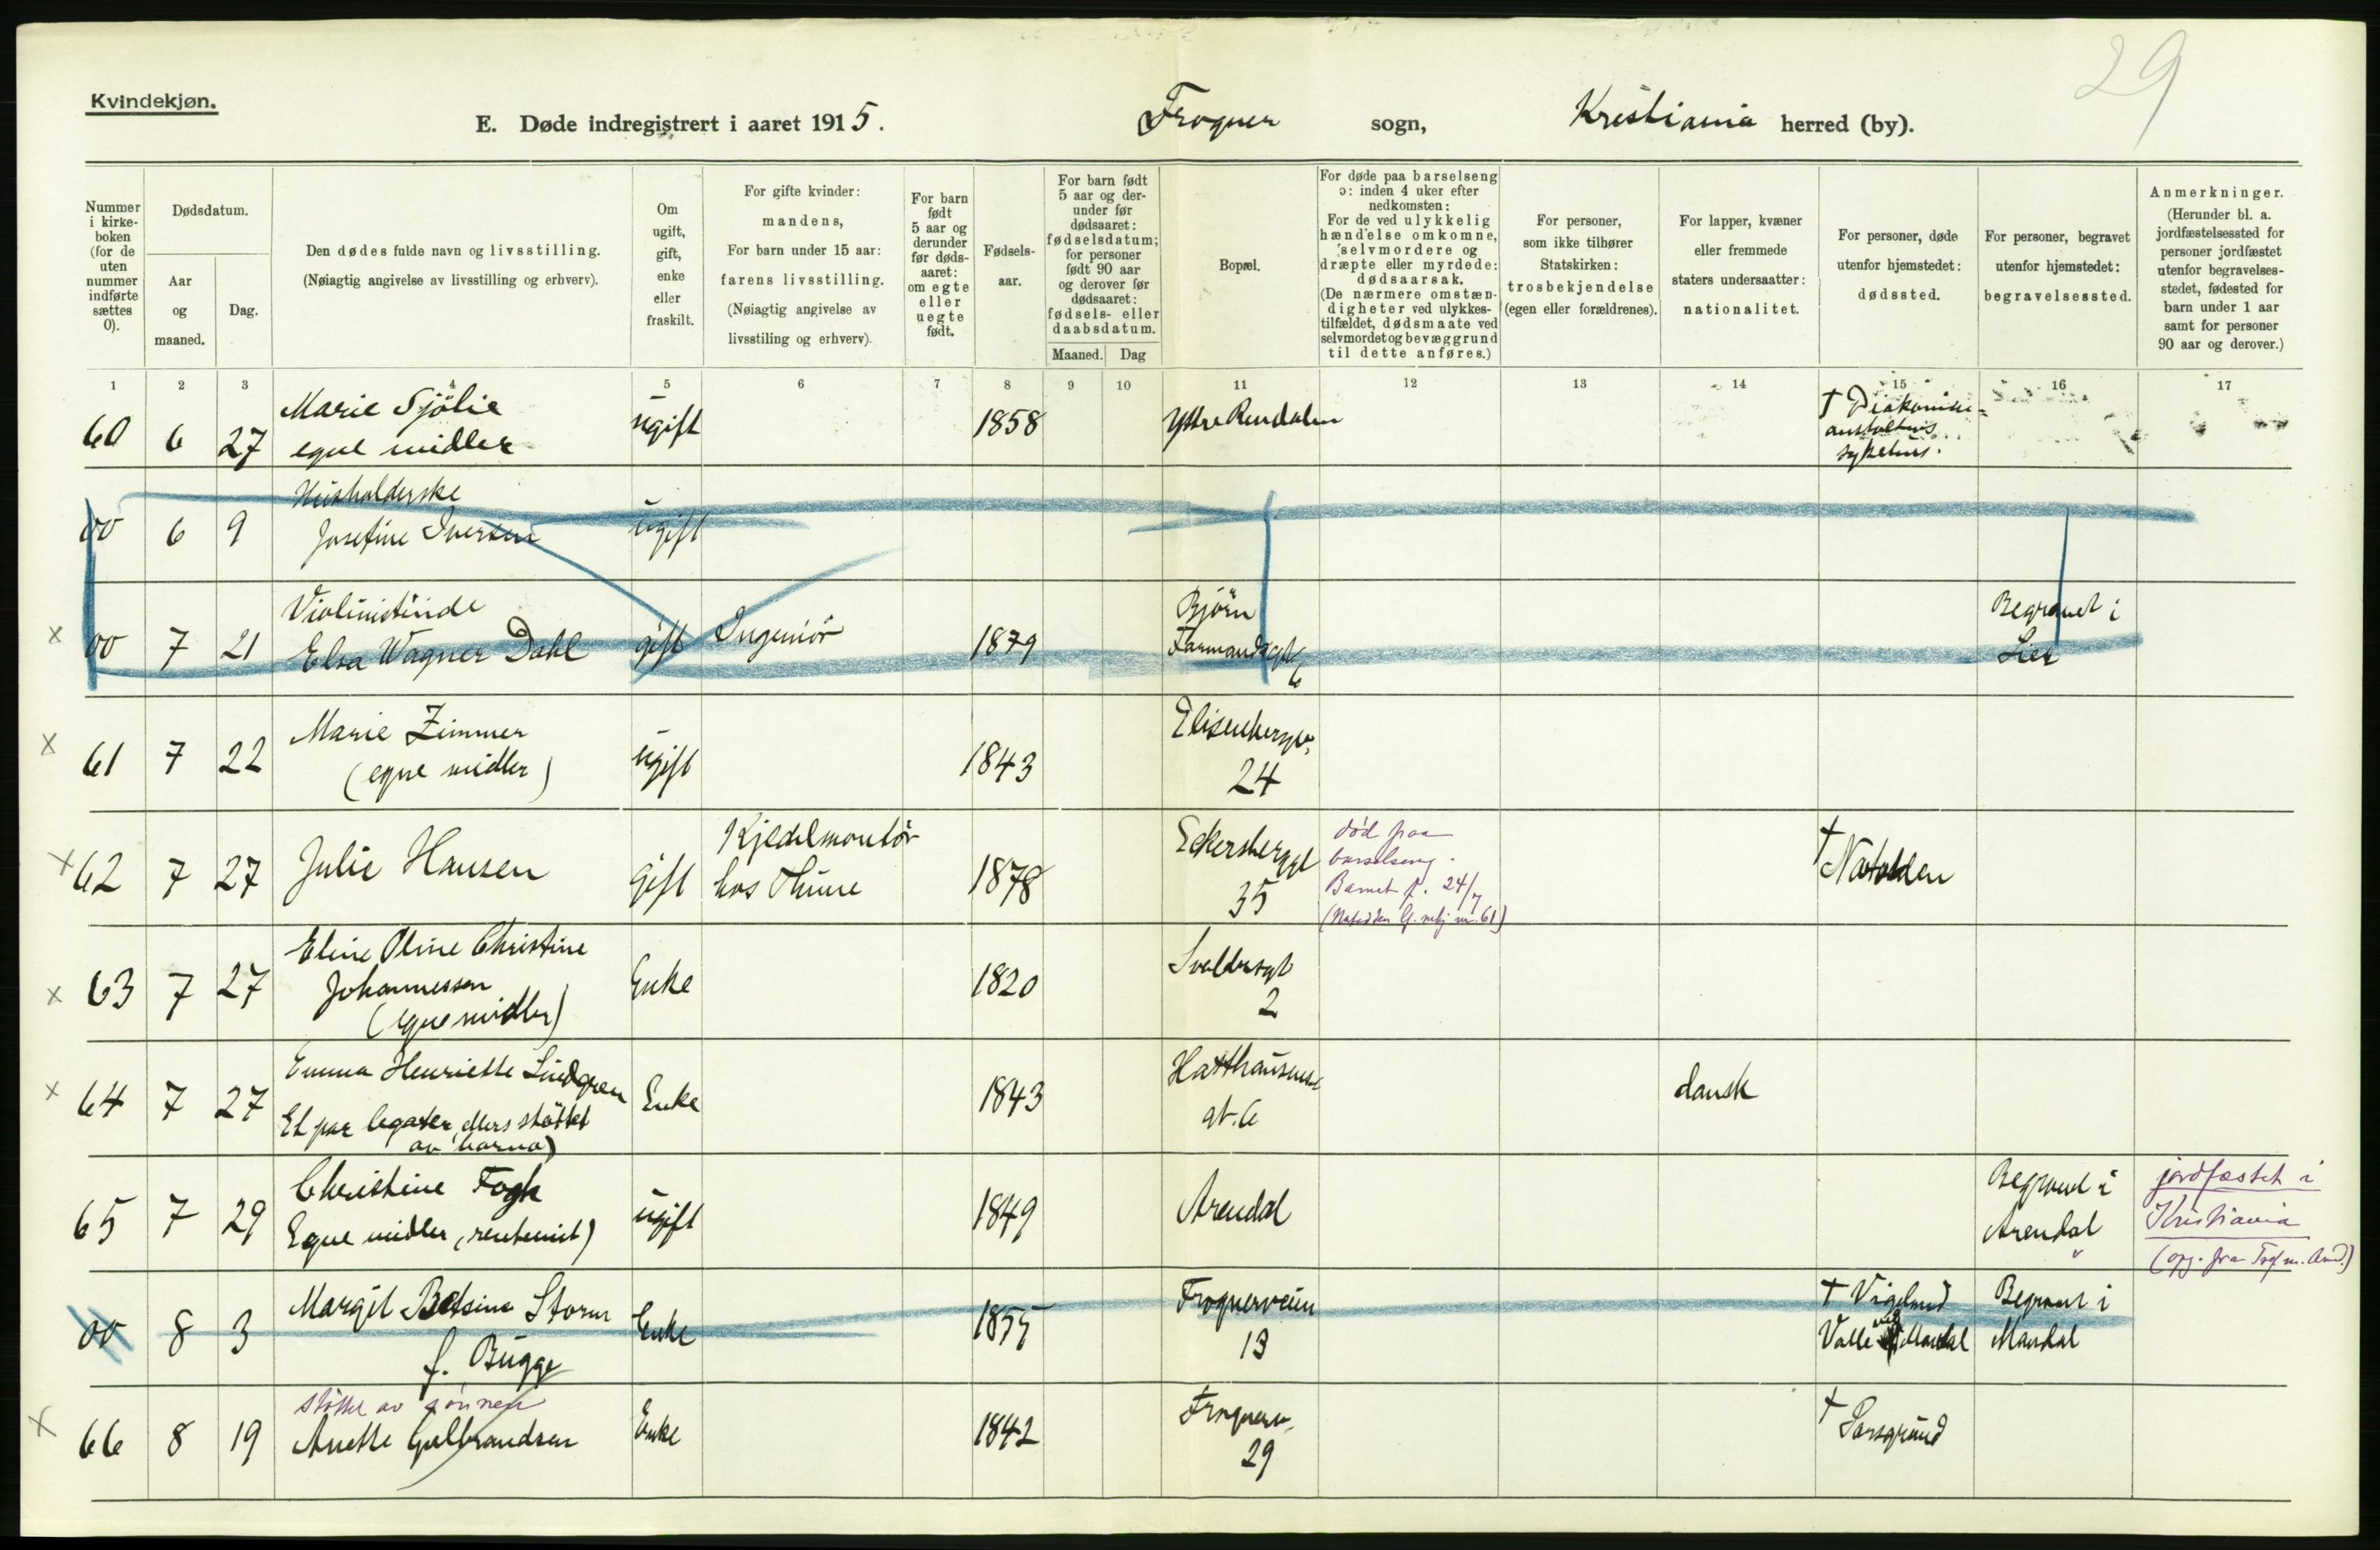 29
Kvindekjøn.
E. Døde indregistrert i aaret 1915. Frogner sogn, Kristiania herred (by).
Nummer i kirke-boken (for de uten nummer indførte sættes 0).
Dødsdatum.
Aar og maaned.
Dag.
Den dødes fulde navn og livsstilling.
(Nøiagtig angivelse av livsstilling og erhverv).
Om ugift, gift, enke eller fraskilt.
For gifte kvinder:
mandens,
For barn under 15 aar:
farens livsstilling.
(Nøiagtig angivelse av
livsstiling og erhverv).
For barn født 5 aar og derunder før døds-aaret: om egte eller uegte født.
Fødsels-aar.
For barn født 5 aar og der-under før dødsaaret: fødselsdatum; for personer født 90 aar og derover før dødsaaret: fødsels- eller daabsdatum.
Maaned. Dag
Bopæl.
For døde paa barselseng
ɔ: inden 4 uker efter
nedkomsten:
For de ved ulykkelig
hændelse omkomne,
selvmordere og
dræpte eller myrdede:
dødsaarsak.
(De nærmere omstæn-
digheter ved ulykkes-
tilfældet, dødsmaate ved
selvmordet og bevæggrund
til dette anføres.)
For personer,
som ikke tilhører
Statskirken:
trosbekjendelse
(egen eller forældrenes).
For lapper, kvæner
eller fremmede
staters undersaatter:
nationalitet.
For personer, døde
utenfor hjemstedet:
dødssted.
For personer, begravet
utenfor hjemstedet:
begravelsessted.
Anmerkninger.
(Herunder bl. a.
jordfæstelsessted for
personer jordfæstet
utenfor begravelses-
stedet, fødested for
barn under 1 aar
samt for personer
90 aar og derover.)
1 2 3 4 5 6 7 8 9 10 11 12 13 14 15 16 17
60 6 27 Marie Sjölie
egne midler
ugift 1858 Ytre Rendalen
† Diakonisse-
anstaltens
sykehus.
00 6 9 Husholderske
Josefine Iversen
ugift
x 00 7 21 Violinistinde
Elsa Wagner Dahl
gift Ingeniör 1879
Björn
Farmandsgt
6
Begravet i
Lier
x 61 7 22 Marie Zimmer
(egne midler)
ugift 1843
Elisenbergv.
24
x 62 7 27 Julie Hansen
Gift
Kjedelmontör
hos Thune
1878
Eckersberggt
35
död paa
barselseng.
Barnet f. 24/7
† Notodden
x 63 7 27 Eline Oline Christine
Johannessen
(egne midler)
Enke 1820
Svoldersgt
2
x 64 7 27 Emma Henriette Lindgren
Et par legater, ellers støttet
av barna)
Enke 1843
gt. 6
dansk
65 7 29 Christine Fogh
Egne midler, (rentenist)
ugift 1849 Arendal
Begravet i
Arendal
jordfæstet i
Kristiania
00 8 3 Margit Betsine Storm
f. Bugge
Enke 1855
Frognerveien
13
† Vigeland
Valle ved Mandal
Begravet i
Mandal
x 66 8 19 støttet av sönnen
Anette Gulbrandsen
Enke 1842
Frognerv.
29
† Porsgrund